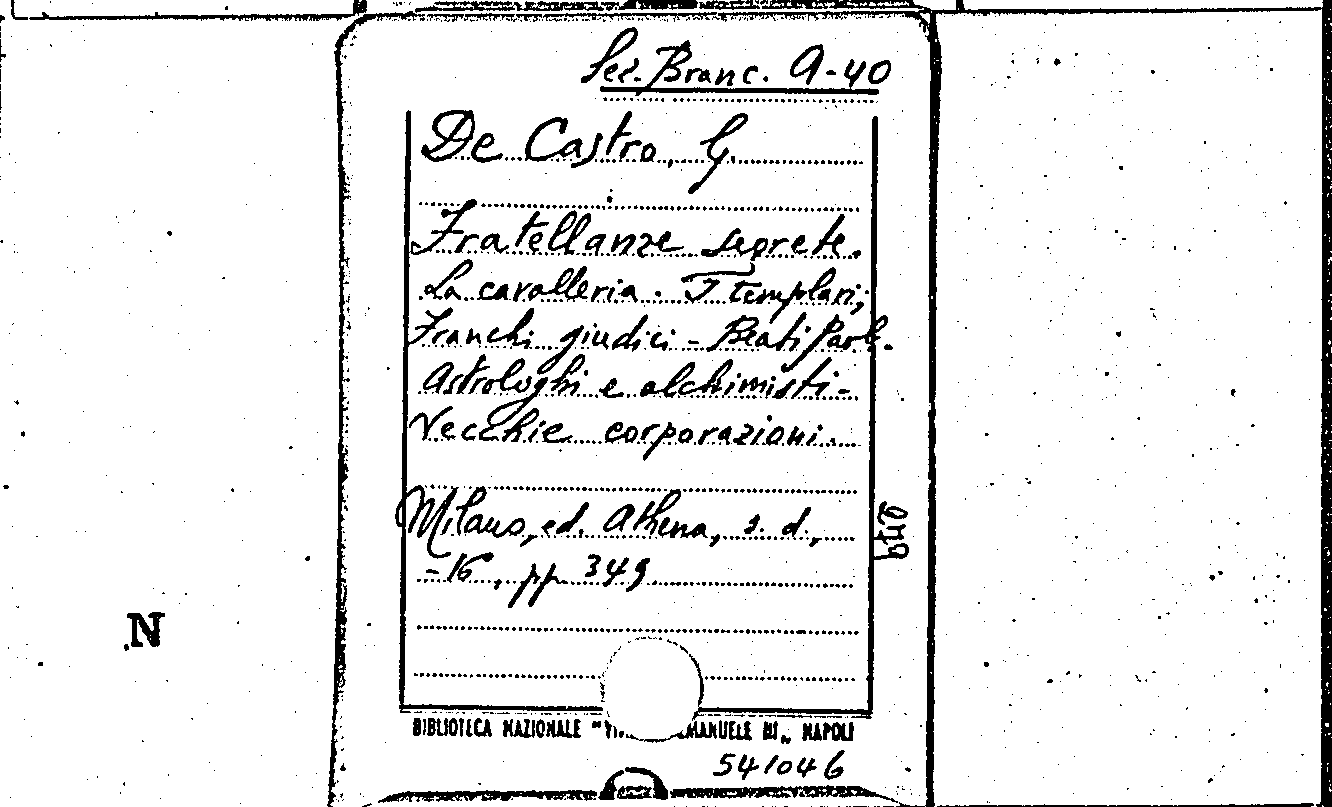 Sez. Branc. A-40
De Castro, G.
Fratellanze segrete.
La cavalleria. I templari,
Franchi giudici - Beati Paol.
Astrologhi e alchimisti -
Vecchie corporazioni.
Milano, ed. Athena, s. d.,
-16, pp 349
BIBLIOTECA NAZIONALE " EMANUELE III„ NAPOLI
541046
N